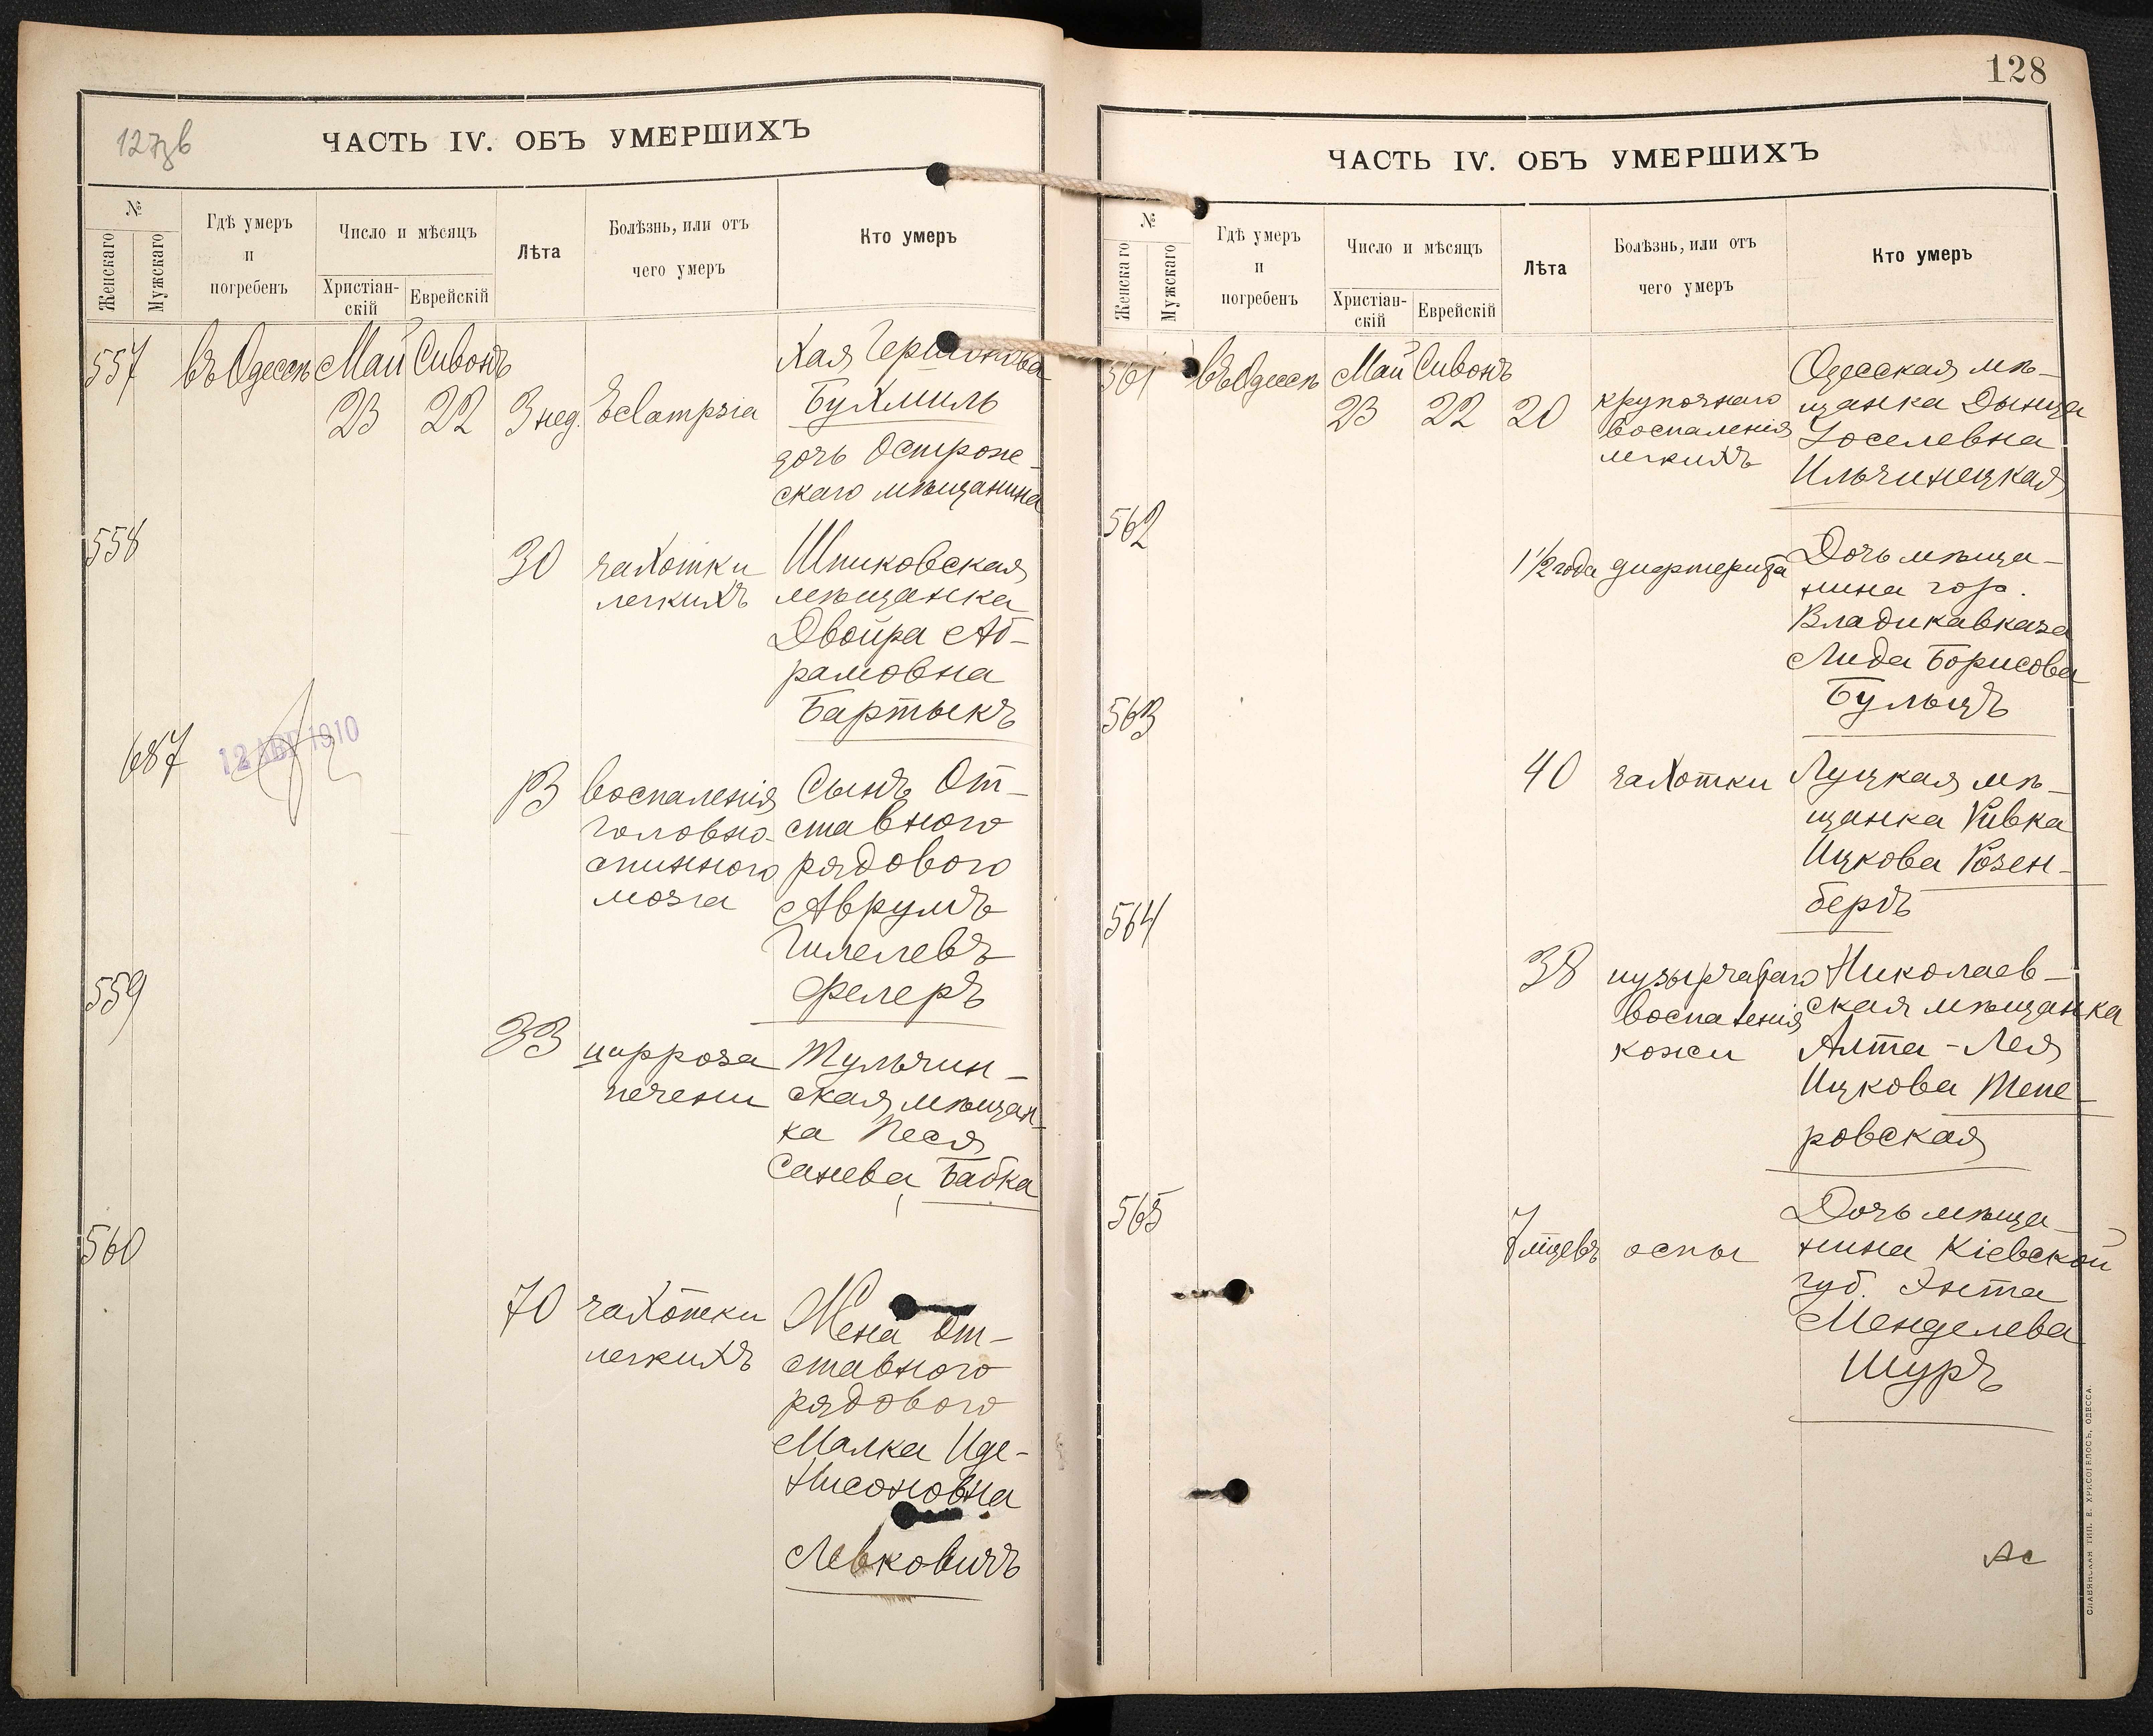 127зв
ЧАСТЬ IV. ОБЪ УМЕРШИХЪ
№
Женскаго
Мужскаго
Гдѣ умеръ
и
погребенъ
Число и мѣсяцъ
Христіан-
скій
Еврейскій
Лѣта
Болѣзнь, или отъ
чего умеръ
Кто умеръ
557
въ Одессѣ
Май
23
Сивонъ
22
3 нед.
Eclampsia
Хая Гершонова
Бухмиль
дочь Острож-
скаго мѣщанина
558
30
чахотки
легкихъ
Шпиковская
мѣщанка
Двойра Аб-
рамовна
Бартыкъ
687
12 АВГ 1910
13
воспаленія
головно-
спинного
мозга
Сынъ От-
ставного
рядового
Аврумъ
Гилелевъ
Фелеръ
559
33
цирроза
печени
Тульчин-
ская мѣщан-
ка Песя
Санева Бабка
560
70
чахотки
легкихъ
Жена от-
ставного
рядового
Малка Иде-
Нисоновна
Левковичъ
128
ЧАСТЬ IV. ОБЪ УМЕРШИХЪ
№
Женскаго
Мужскаго
Гдѣ умеръ
и
погребенъ
Число и мѣсяцъ
Христіан-
скій
Еврейскій
Лѣта
Болѣзнь, или отъ
чего умеръ
Кто умеръ
561
въ Одессѣ
Май
23
Сивонъ
22
20
крупознаго
воспаленія
легкихъ
Одесская мѣ-
щанка Дыница
Іоселевна
Ильчинецкая
562
1 1/2 года
дифтерита
Дочь мѣща-
нина гор.
Владикавказа
Лида Борисова
Бульцъ
563
40
чахотки
Луцкая мѣ-
щанка Ривка
Ицкова Розен-
бергъ
564
38
пузырчатаго
воспаленія
кожи
Николаев-
ская мѣщанка
Алта-Лея
Ицкова Тепе-
ровская
565
7 мѣцевъ
оспы
Дочь мѣща-
нина Кіевской
губ. Энта
Менделева
Шуръ
СЛАВЯНСКАЯ ТИП. Е. ХРИСОГЕЛОСЪ, ОДЕССА.